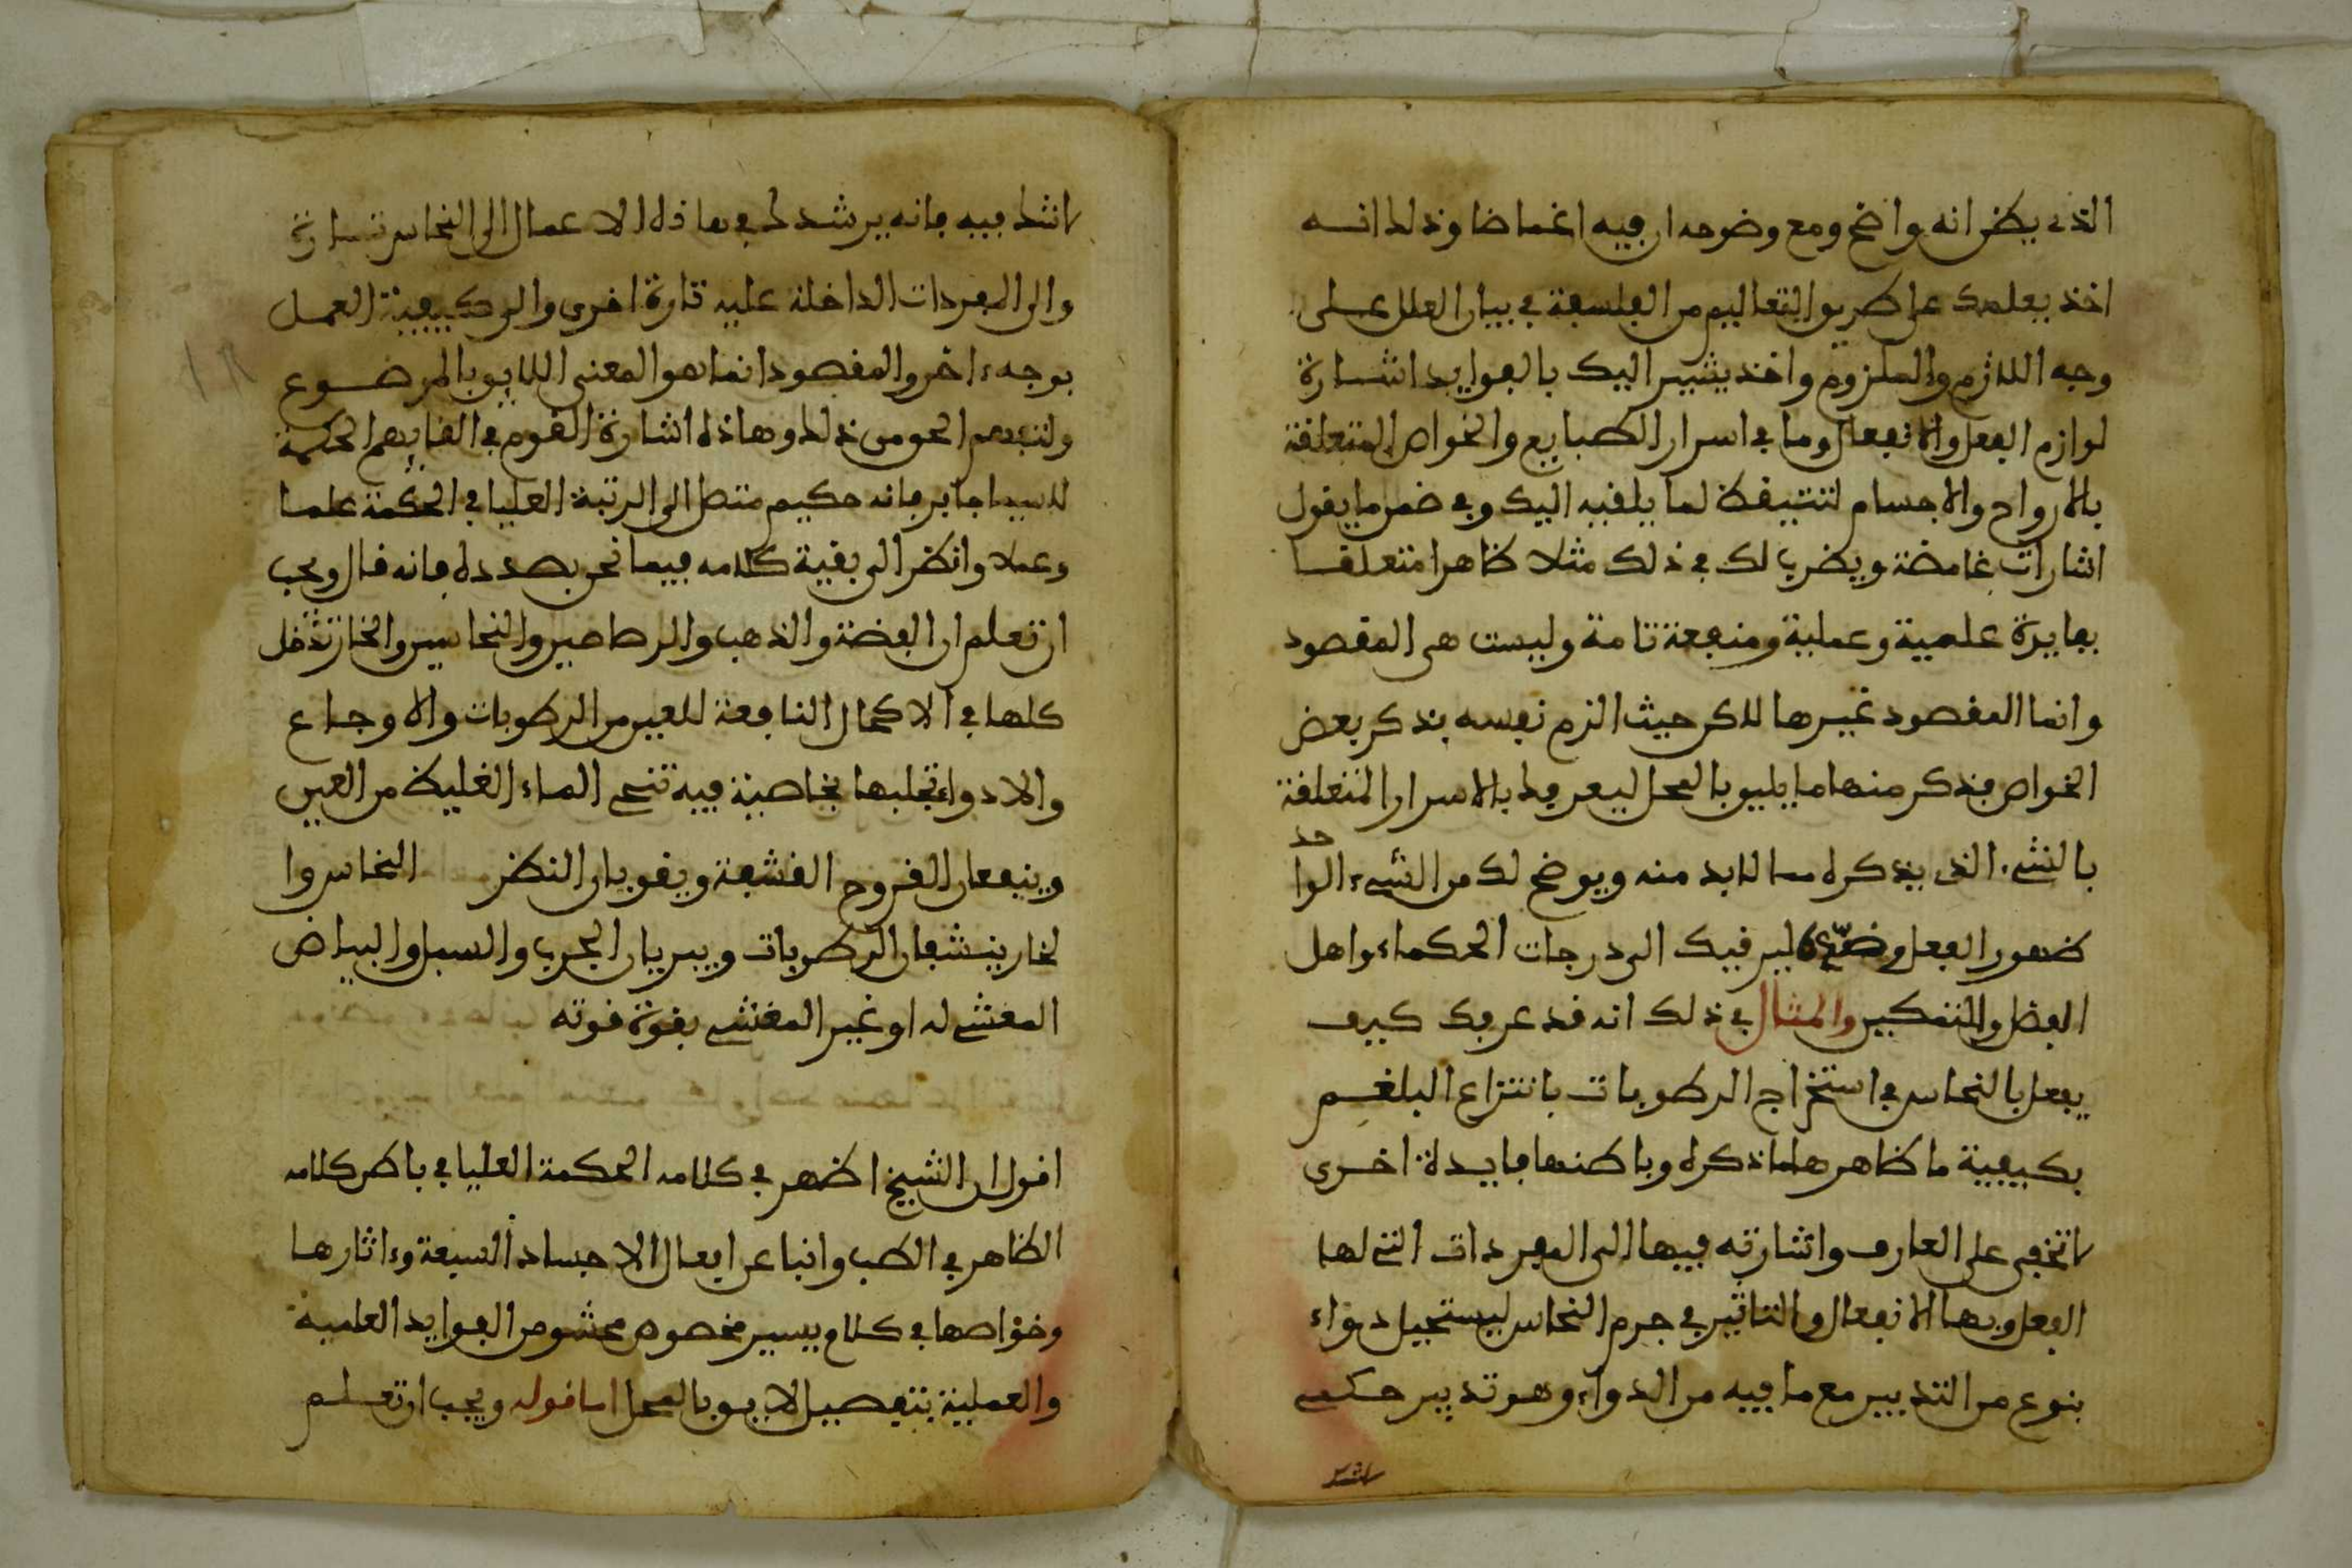 الذى يظن انه واضح ومع وضوحه ان فيه اغماضا وذلك انه
اخذ يعلمك على طريق التعاليم من الفلسفة في بيان العلل على
وجه اللازم والملزوم واخذ يشير اليك بالفوايد اشارة
لوازم الفعل والانفعال وما في اسرار الطبايع والخواص المتعلقة
بالارواح والاجسام لتتيقظ لما يلقيه اليك وفي ضمن ما يقول
اشارات غامضة ويضرب لك في ذلك مثلا ظاهرا متعلقا
بفايدة علمية وعملية ومنفعة تامة وليست هى المقصود
وانما المقصود غيرها لاكن حيث الزم نفسه بذكر بعض
الخواص فذكر منها ما يليق بالمحل ليعرفك بالاسرار المتعلقة
بالشىء الذى يذكره مما لابد منه ويوضح لك من الشىء الواحد
ظهور الفعل و ليرقيك الى درجات الحكماء واهل
الفضل والمتمكين والمثال في ذلك انه قد عرفك كيف
يفعل بالنحاس في استخراج الرطوبات بانتزاع البلغم
بكيفية ما ظاهرها ما ذكره وباطنها فايدة اخرى
لا تخفى على العارف واشارته فيها الى المفردات التى لها
الفعل وبها الانفعال والتاثير في جرم النحاس ليستحيل دواء
بنوع من التدبير مع ما فيه من الدواء وهو تدبير حكمى
لا شك
لا شك فيه فانه يرشدك في هاذه الاعمال الى النحاس تارة
والى المفردات الداخلة عليه تارة اخرى والى كيفية العمل
بوجه ءاخر والمقصود انما هو المعنى اللايق بالموضوع
ولتفهم الحق من ذلك وهاذه اشارة القوم في الغابهم الحكمة
لاسيما جابر فانه حكيم متصل الى الرتبة العليا في الحكمة علما
وعملا وانظر الى بقية كلامه فيما نحن بصدده فانه قال ويجب
ان تعلم ان الفضة والذهب والرصاصين والنحاسين والخار تدخل
كلها في الاكحال النافعة للعين من الرطوبات والاوجاع
والادواء تجلبها بخاصية فيه تنحى الماء الغليظ من العين
وينفعان القروح القشفة ويقويان النظر النحاس وا
لخار ينشفان الرطوبات ويبريان الجرب والسبل والبياض
المغشى له او غير المغشى بقوة قوته
اقول ان الشيخ اظهر في كلامه الحكمة العليا في باطن كلامه
الظاهر في الطب وانبا عن افعال الاجساد السبعة وءاثارها
وخواصها في كلام يسير مخصوص محشو من الفوايد العلمية
والعملية بتفصيل لايق بالمحل اما قوله ويجب ان تعلم